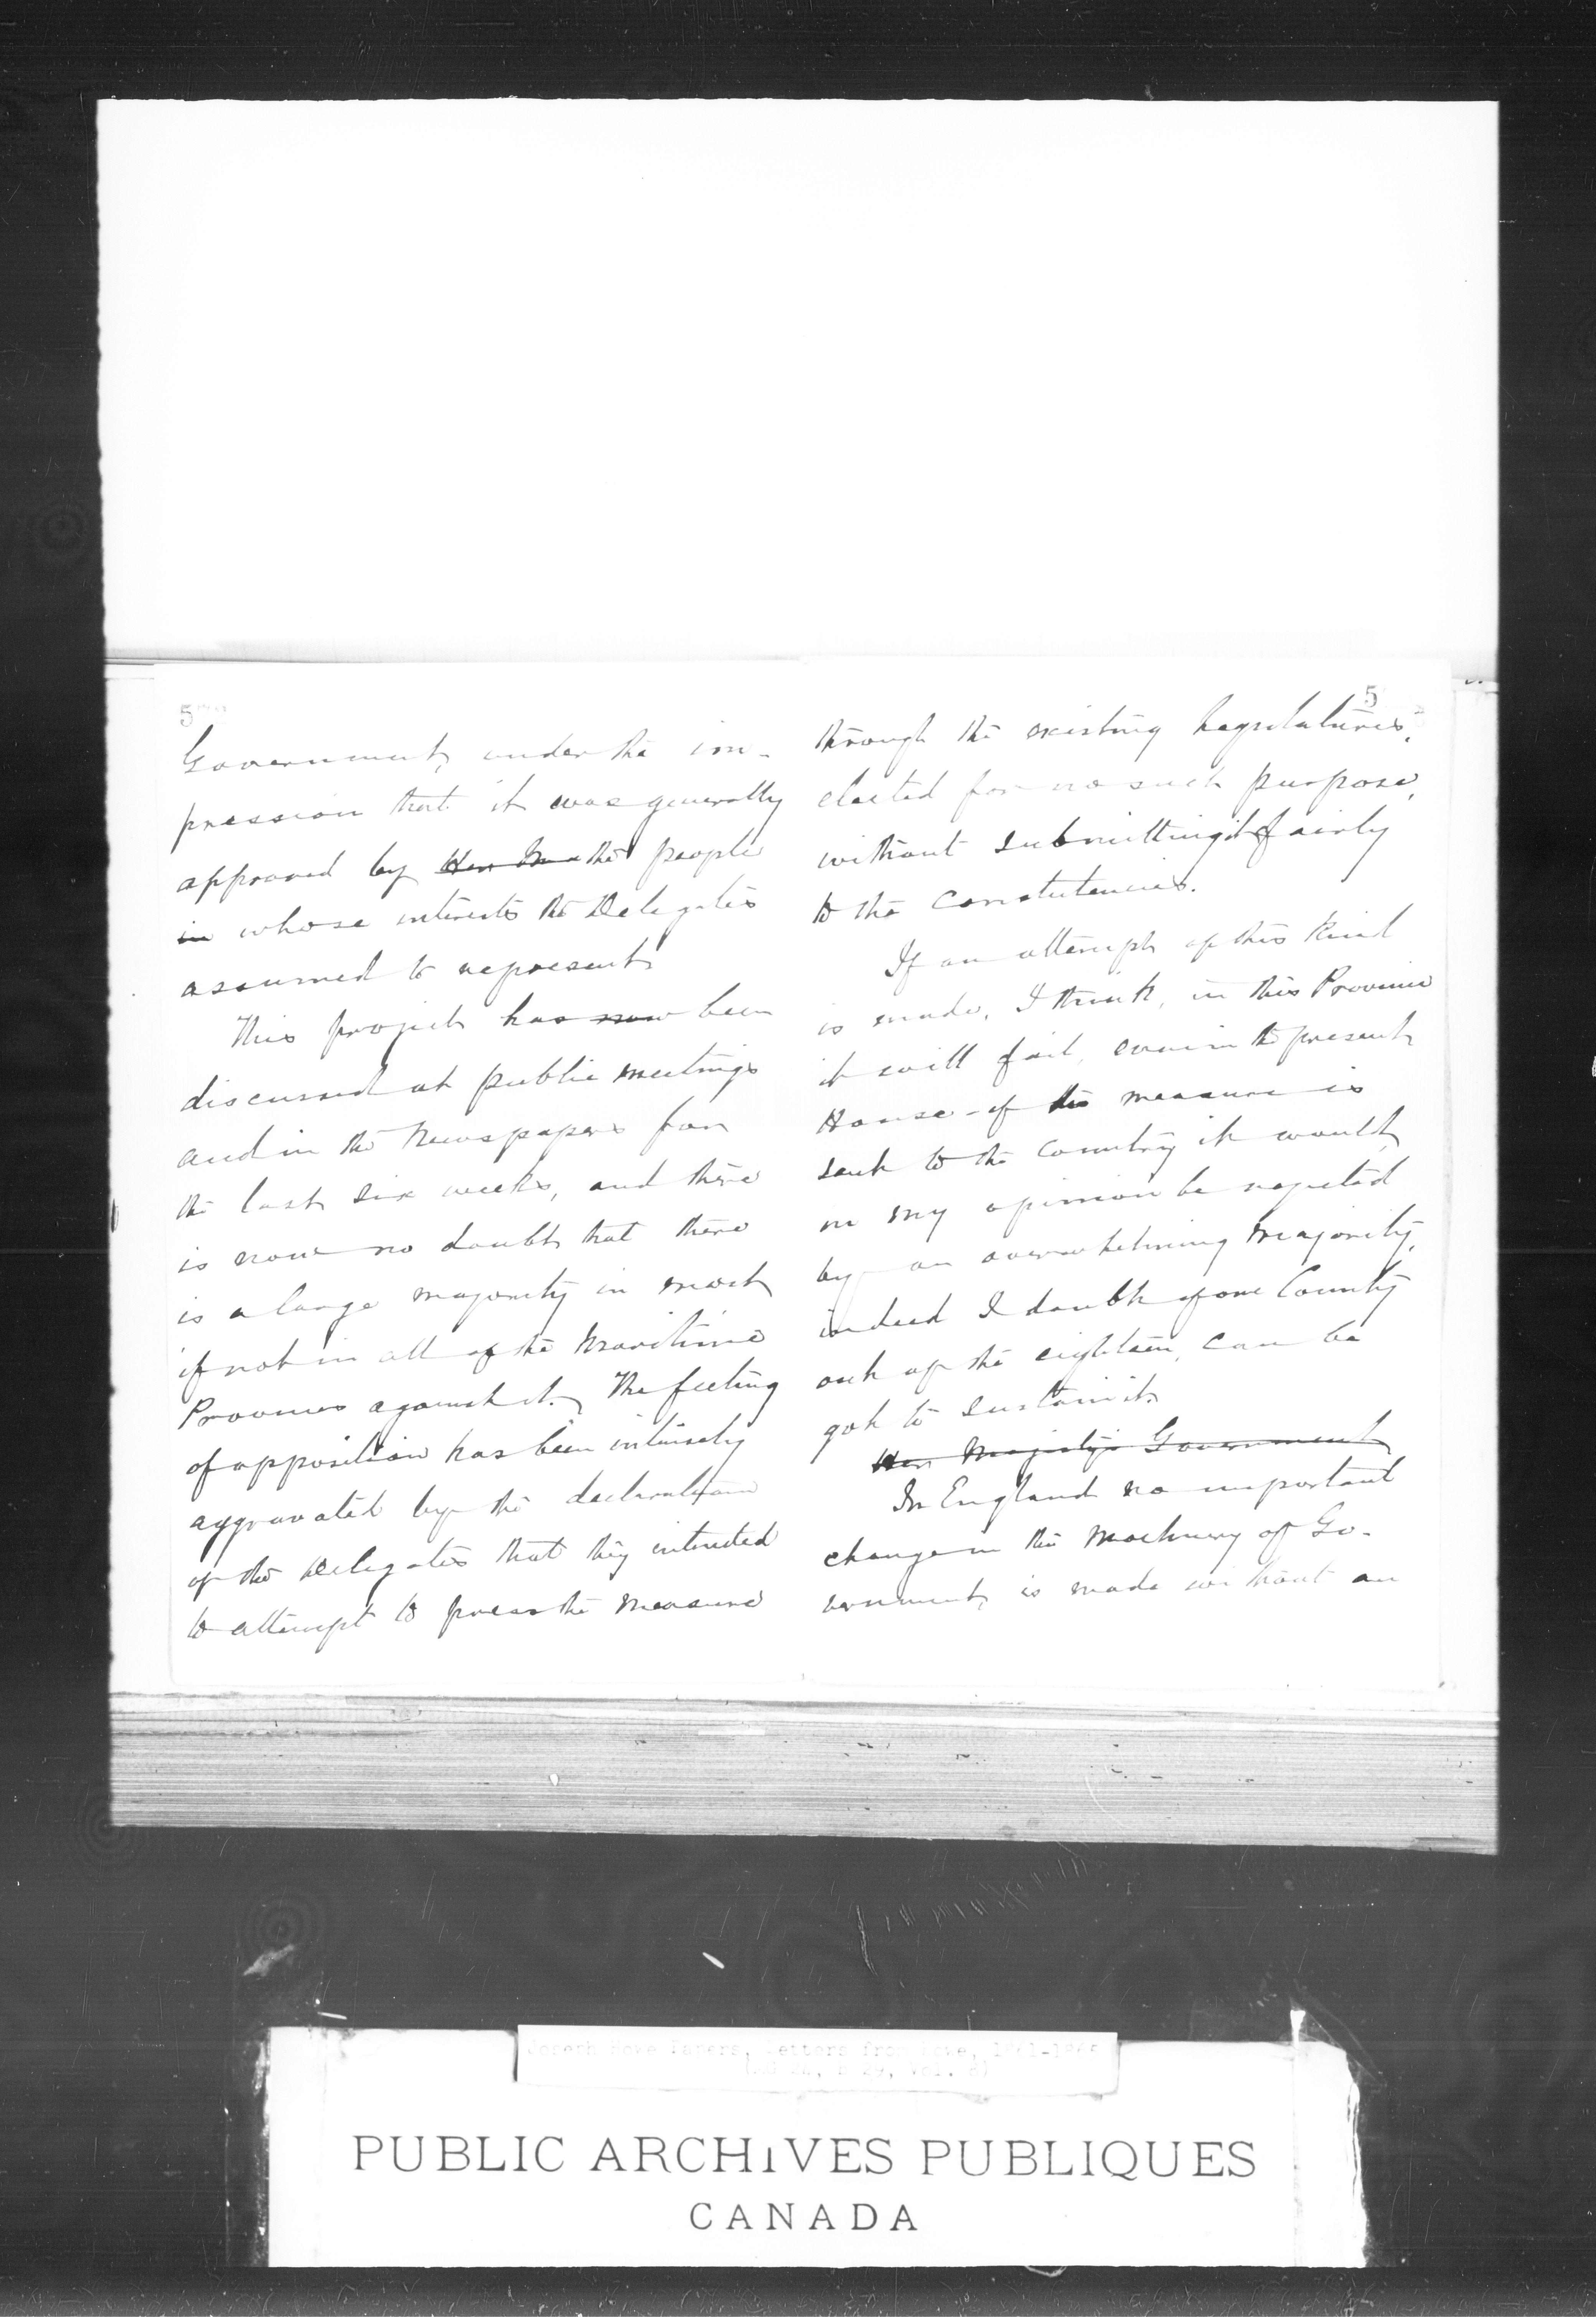 5
Government, under the im-
pression that it was generally
approved by Her Ma the people
in whose interests the Delegates
assumed to represent.
This project has now been
discussed at public meetings
and in the Newspapers for
the last six weeks, and there
is now no doubt that there
is a large majority in most
if not in all of the Maritime
Provinces against it. The feeling
of opposition has been intensely
aggravated by the declaration
of the Delegates that they intended
to attempt to press the measure
5
through the existing Legislatures,
elected for no such purpose,
without submitting it fairly
to the Constituencies.
If an attempt of this kind
is made, I think, in this Province
it will fail, even in the present
House - if the measure is
sent to the Country it would,
in my opinion be rejected
by an overwhelming majority,
indeed I doubt if one County
out of the eighteen, can be
got to sustain it.
Her Majesty's Government
In England no important
change in the Machinery of Go-
vernment, is made without an
Joseph Howe Papers, Letters from Howe, 1861-1865
(MG 24, B 29, Vol. 8)
PUBLIC ARCHIVES PUBLIQUES
CANADA